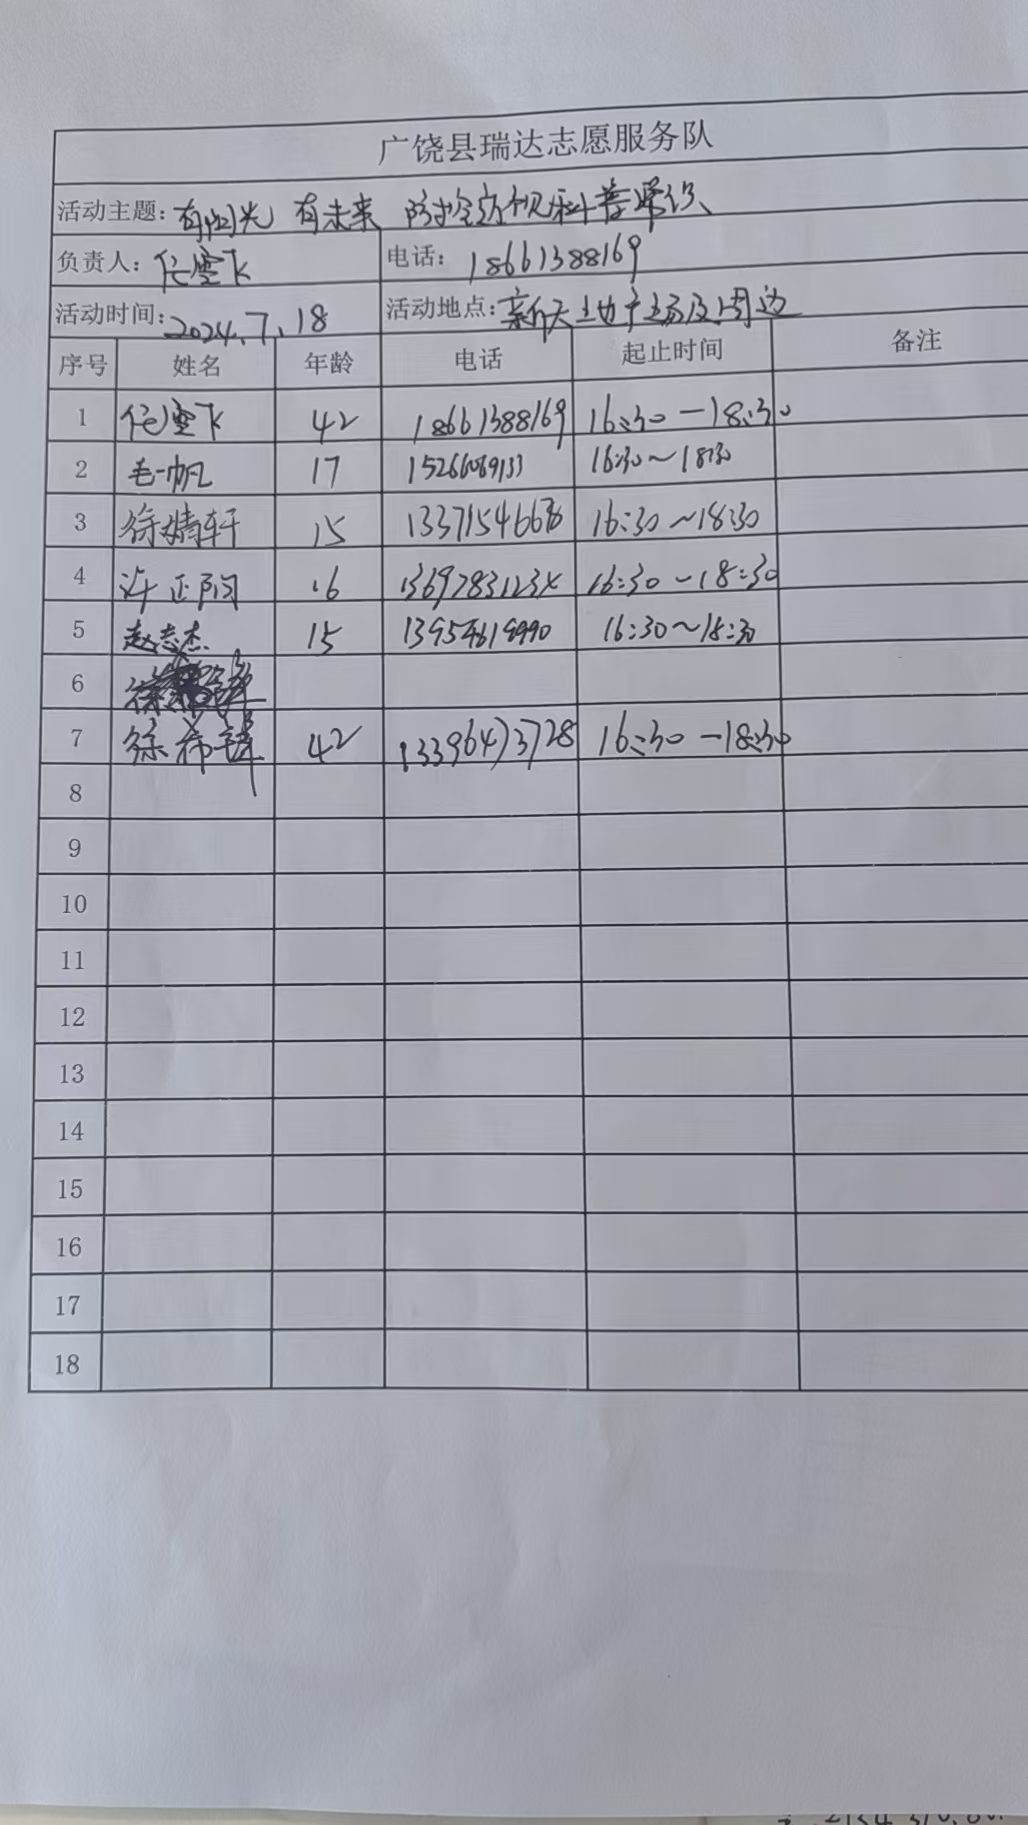 广饶县瑞达志愿服务队
活动主题: 有阳光 有未来 科普
负责人: 任雪飞 电话: 18661388169
活动时间: 2024.7.18 活动地点: 新天地广场及周边
序号 姓名 年龄 电话 起止时间 备注
1 任雪飞 42 18661388169 16:30-18:30
2 毛一帆 17 15266089133 16:30~18:30
3 徐婧轩 15 16:30~18:30
4 许正阳 16 16:30-18:30
5 赵志杰 15 16:30~18:30
6
7 徐希锋 42 13396473728 16:30-18:30
8
9
10
11
12
13
14
15
16
17
18